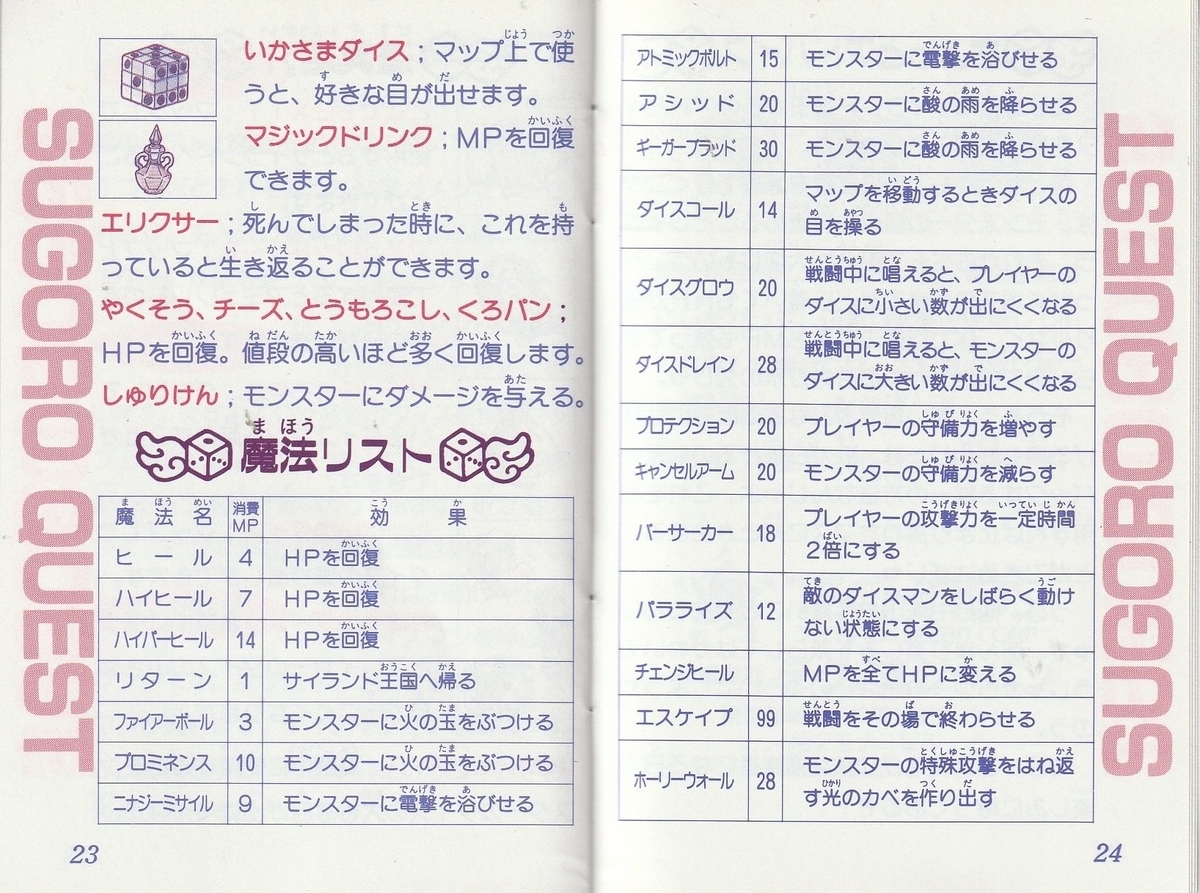 SUGORO QUEST
いかさまダイス；マップ上で使
うと、好きな目が出せます。
マジックドリンク；MPを回復
できます。
エリクサー；死んでしまった時に、これを持
っていると生き返ることができます。
やくそう、チーズ、とうもろこし、くろパン；
HPを回復。値段の高いほど多く回復します。
しゅりけん；モンスターにダメージを与える。
魔法リスト
魔法名 消費MP 効果
ヒール 4 HPを回復
ハイヒール 7 HPを回復
ハイパーヒール 14 HPを回復
リターン 1 サイランド王国へ帰る
ファイアーボール 3 モンスターに火の玉をぶつける
プロミネンス 10 モンスターに火の玉をぶつける
ニナジーミサイル 9 モンスターに電撃を浴びせる
23
アトミックボルト 15 モンスターに電撃を浴びせる
アシッド 20 モンスターに酸の雨を降らせる
ギーガーブラッド 30 モンスターに酸の雨を降らせる
ダイスコール 14 マップを移動するときダイスの
目を操る
ダイスグロウ 20 戦闘中に唱えると、プレイヤーの
ダイスに小さい数が出にくくなる
ダイスドレイン 28 戦闘中に唱えると、モンスターの
ダイスに大きい数が出にくくなる
プロテクション 20 プレイヤーの守備力を増やす
キャンセルアーム 20 モンスターの守備力を減らす
バーサーカー 18 プレイヤーの攻撃力を一定時間
2倍にする
パラライズ 12 敵のダイスマンをしばらく動け
ない状態にする
チェンジヒール MPを全てHPに変える
エスケイプ 99 戦闘をその場で終わらせる
ホーリーウォール 28 モンスターの特殊攻撃をはね返
す光のカベを作り出す
24
SUGORO QUEST